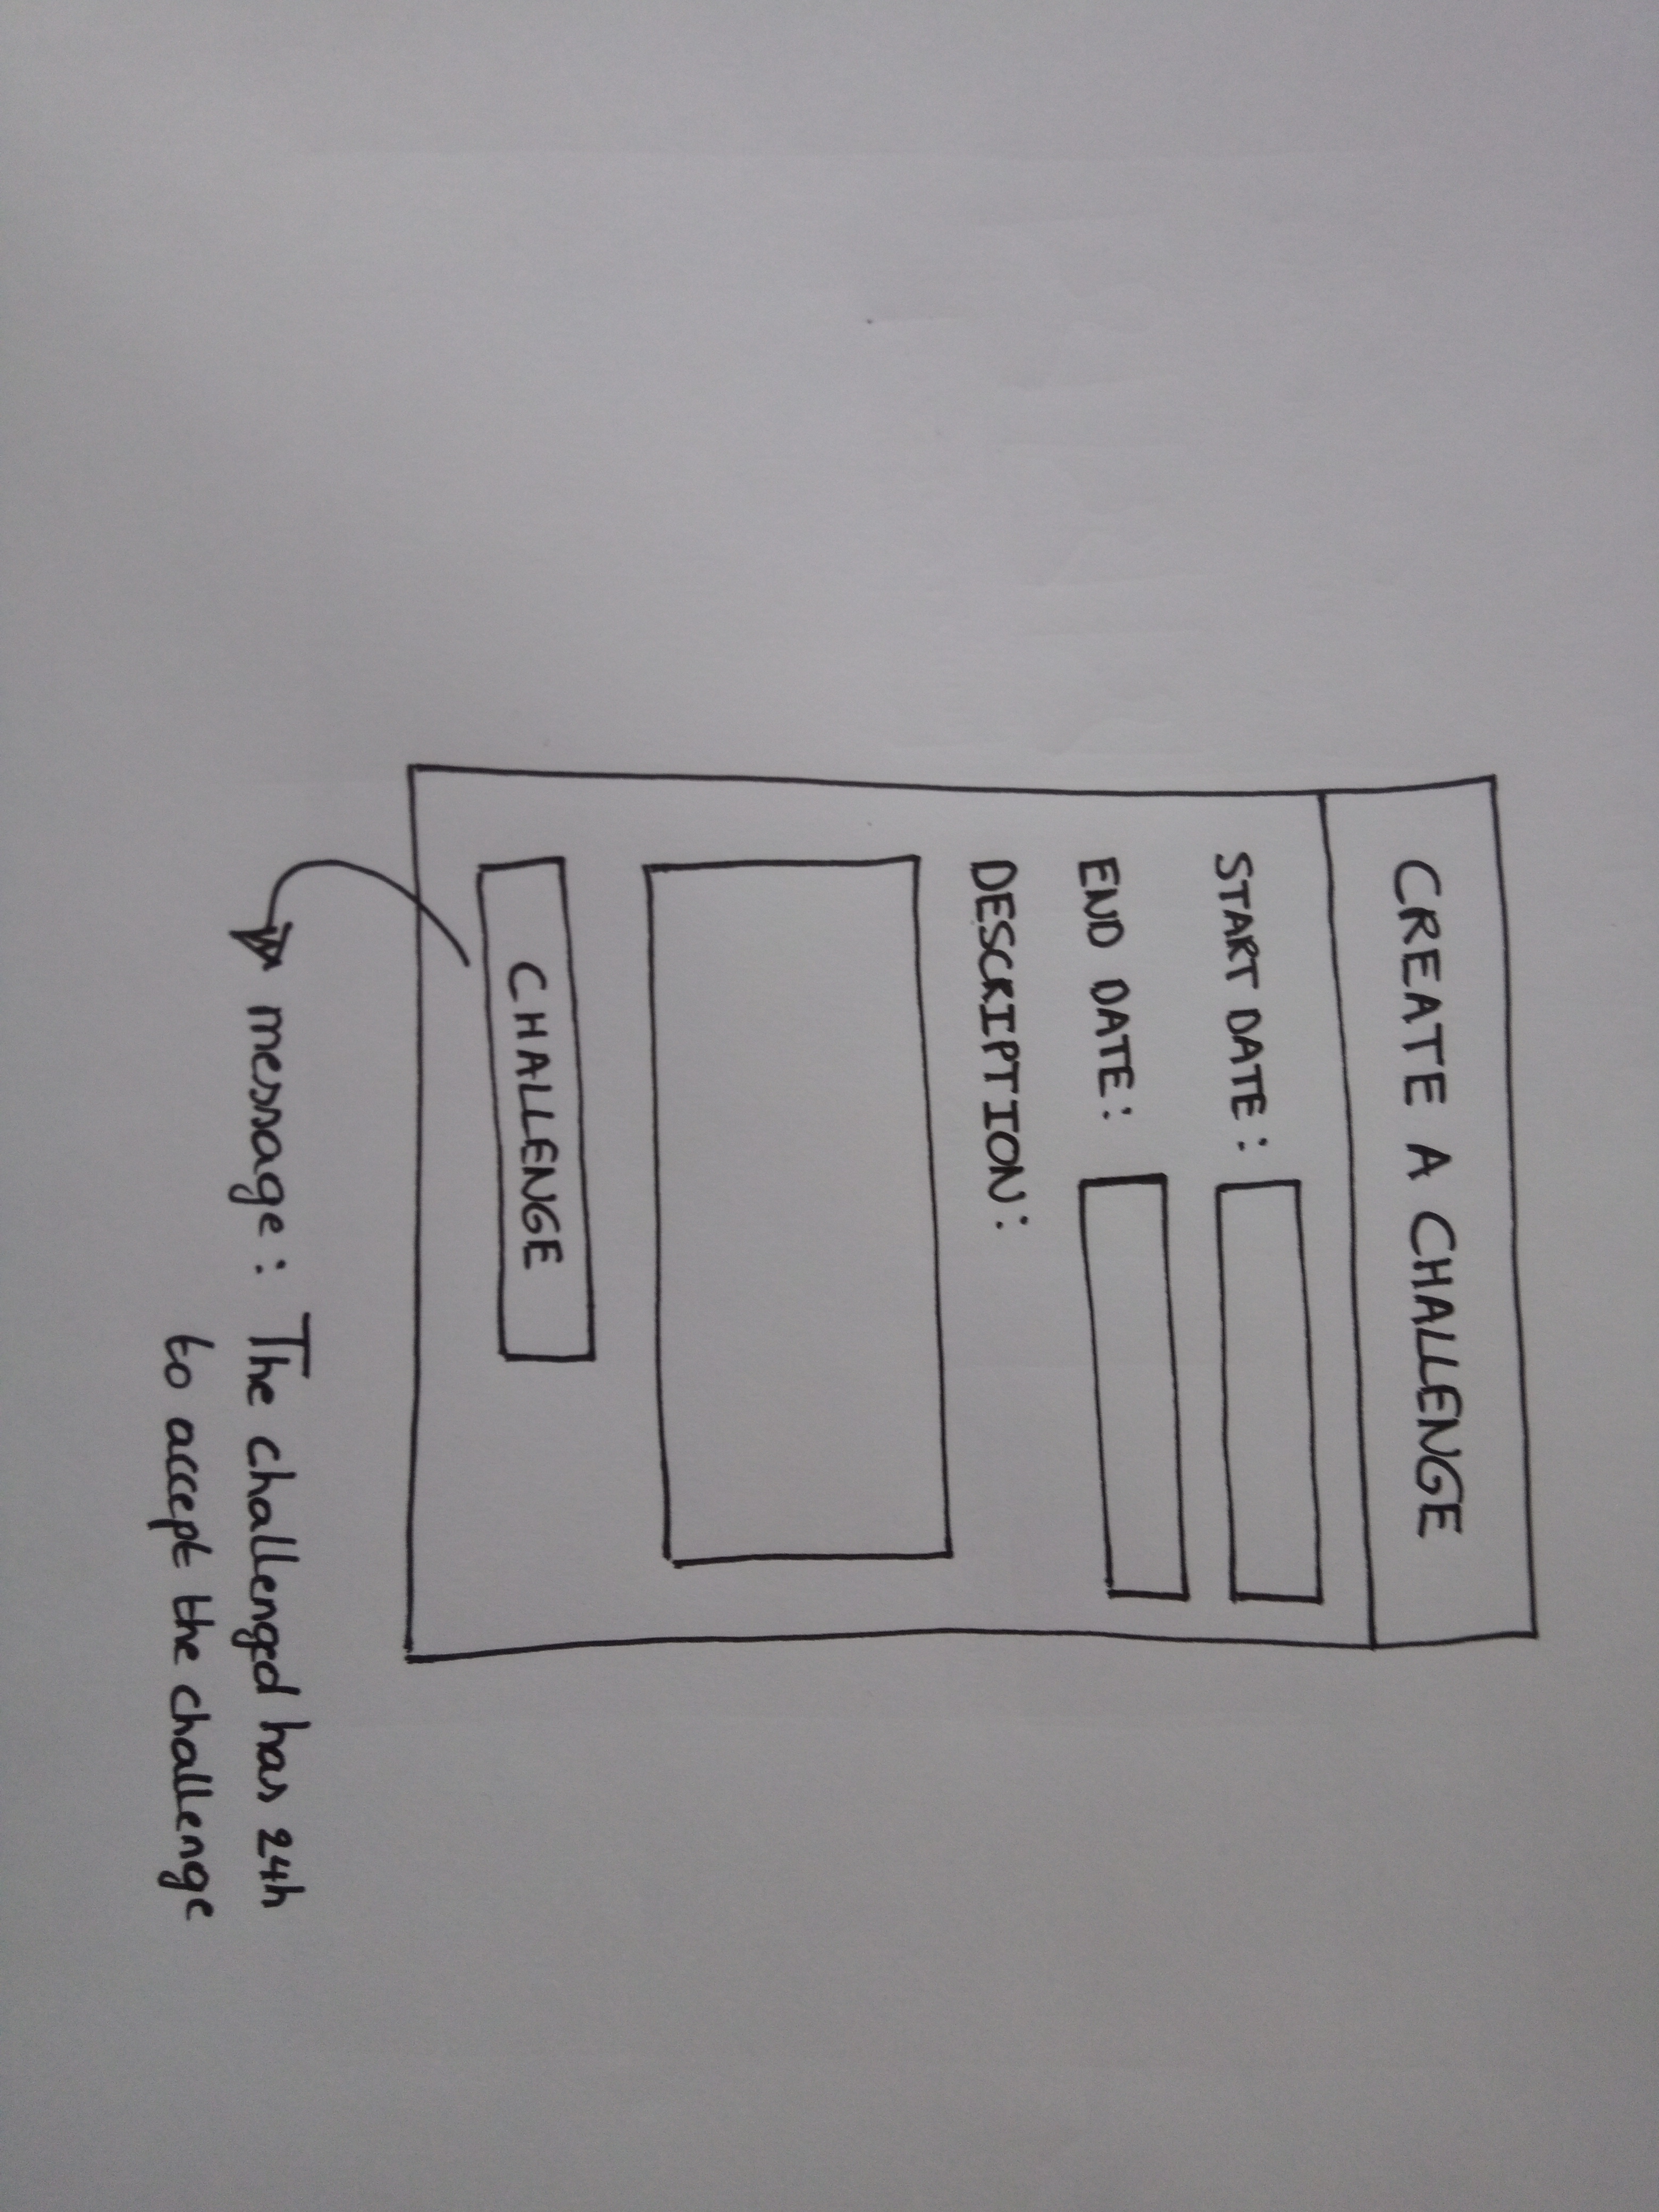 CREATE A CHALLENGE
START DATE :
END DATE :
DESCRIPTION :
CHALLENGE
message : The challenged has 24h
to accept the challenge